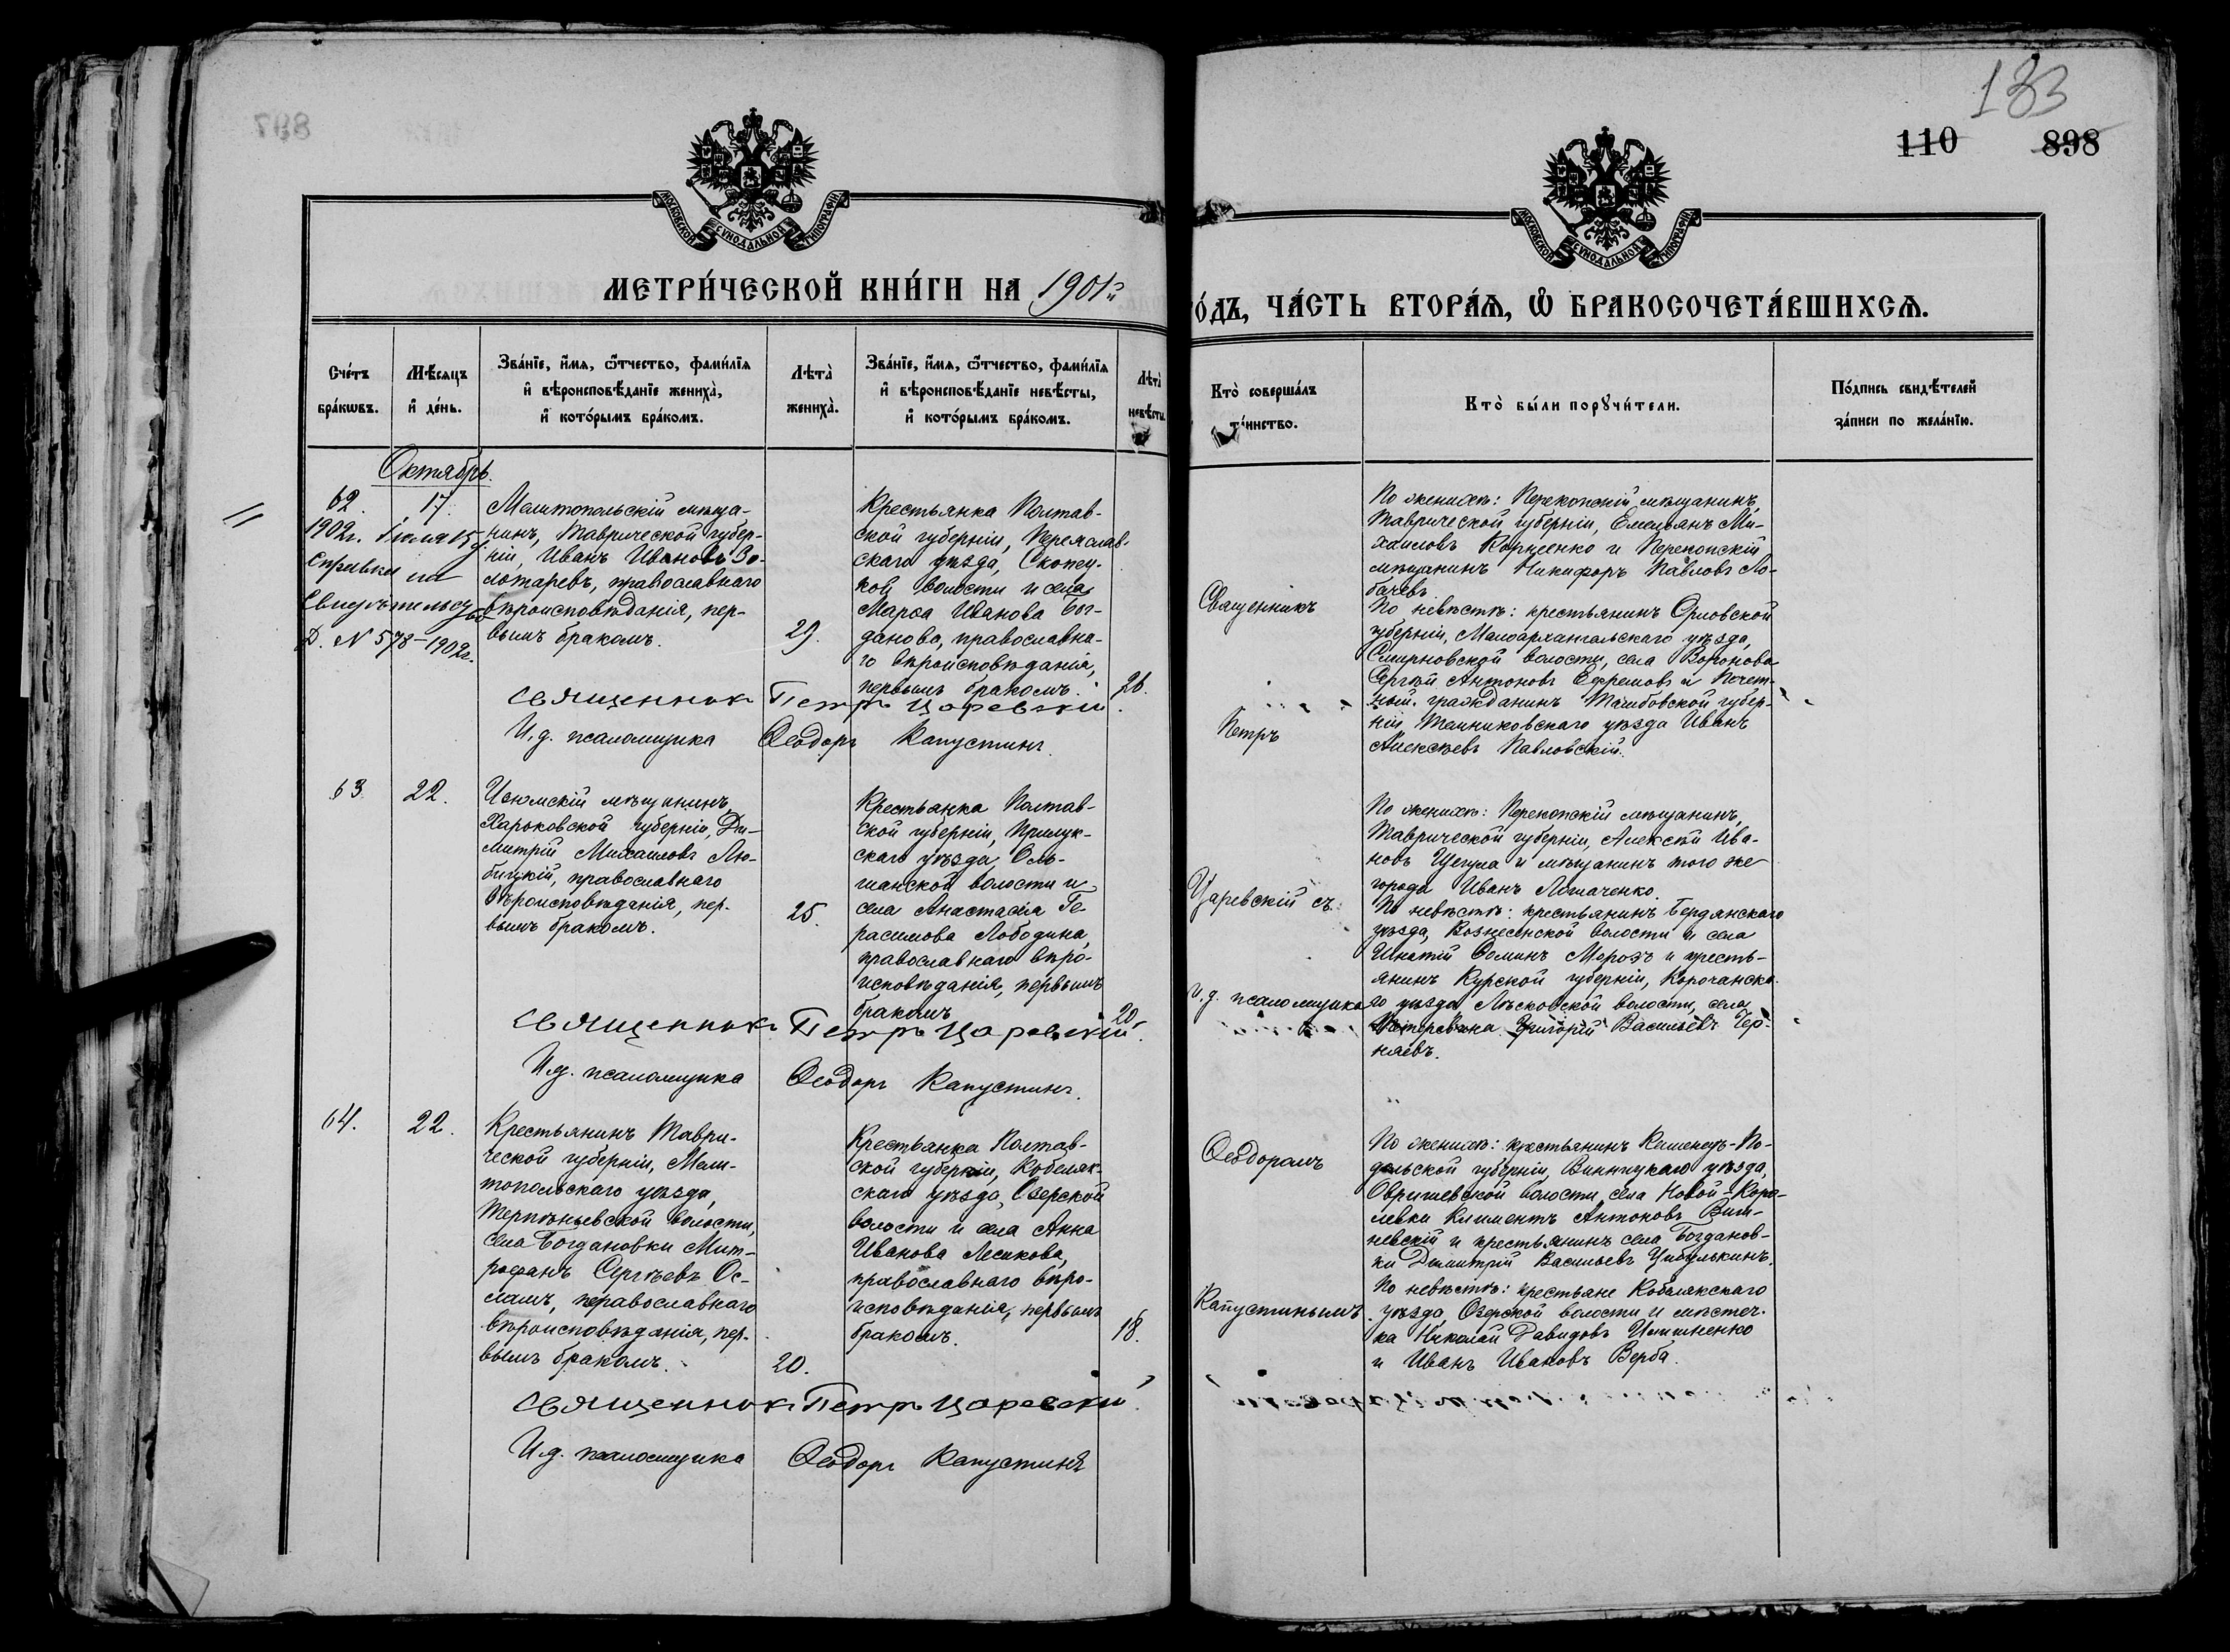 133
110 898
МОСКОВСКОЙ СУНОДАЛЬНОЙ ТИПОГРАФІИ
МОСКОВСКОЙ СУНОДАЛЬНОЙ ТИПОГРАФІИ
МЕТРИ́ЧЕСКОЙ КНИ́ГИ НА 1901й
О́ДЪ, ЧА́СТЬ ВТОРА́Ѧ, Ѽ БРАКОСОЧЕТА́ВШИХСѦ.
Сче́тъ бра́кѡвъ.
Мѣ́сяцъ и҆ де́нь.
Зва́нїе, и҆́мѧ, ѻ҆́тчество, фами́лїѧ и҆ вѣроисповѣ́данїе жениха̀, и҆ кото́рымъ бра́комъ.
Лѣта̀ жениха̀.
Зва́нїе, и҆́мѧ, ѻ҆́тчество, фами́лїѧ и҆ вѣроисповѣ́данїе невѣ́сты, и҆ кото́рымъ бра́комъ.
Лѣта̀ невѣ́сты.
Кто̀ соверша́лъ та́инство.
Кто̀ бы́ли порꙋчи́тели.
По́дпись свидѣ́телей за́писи по жела́нїю.
Октябрь.
62. 17.
1902г. Іюля 15
Справка
Свидѣтельство
Д. № 578-1902г.
Мелитопольскій мѣща-
нинъ, Таврической губер-
ніи, Иванъ Ивановъ Зо-
лотаревъ, православнаго
вѣроисповѣданія, пер-
вымъ бракомъ.
29.
Крестьянка Полтав-
ской губерніи, Переяслав-
скаго уѣзда, Скопец-
кой волости и села
Марѳа Иванова Бог-
данова, православна-
го вѣроисповѣданія,
первымъ бракомъ.
26.
Священникъ Петръ Царевскій.
И.д. псаломщика Ѳеодоръ Капустинъ.
По женихѣ: Перекопскій мѣщанинъ,
Таврической губерніи, Емельянъ Ми-
хаиловъ Корнѣенко и Перекопскій
мѣщанинъ Никифоръ Павловъ Ло-
бачевъ.
По невѣстѣ: крестьянинъ Орловской
губерніи, Малоархангельскаго уѣзда,
Смирновской волости, села Воронова
Сергѣй Антоновъ Ефремовъ и Почет-
ный гражданинъ Тамбовской губер-
ніи Темниковскаго уѣзда Иванъ
Алексѣевъ Павловскій.
63. 22.
Изюмскій мѣщанинъ,
Харьковской губерніи, Ди-
митрій Михаиловъ Лю-
бицкій, православнаго
вѣроисповѣданія, пер-
вымъ бракомъ.
25.
Крестьянка Полтав-
ской губерніи, Прилук-
скаго уѣзда, Оль-
шанской волости и
села Анастасія Ге-
расимова Лободина,
православнаго вѣро-
исповѣданія, первымъ
бракомъ
20.
Священникъ Петръ Царевскій.
И.д. псаломщика Ѳеодоръ Капустинъ.
По женихѣ: Перекопскій мѣщанинъ,
Таврической губерніи, Алексѣй Ива-
новъ Цегула и мѣщанинъ того же
города Иванъ Лымаченко.
По невѣстѣ: крестьянинъ Бердянскаго
уѣзда, Вознесенской волости и села
Игнатій Ѳоминъ Морозъ и кресть-
янинъ Курской губерніи, Корочанска-
го уѣзда Лѣсковской волости, села
Григорій Васильевъ Чер-
няевъ.
64. 22.
Крестьянинъ Таври-
ческой губерніи, Мели-
топольскаго уѣзда,
Терпѣньевской волости,
села Богдановки Мит-
рофанъ Сергѣевъ Ос-
ламъ, православнаго
вѣроисповѣданія, пер-
вымъ бракомъ.
20.
Крестьянка Полтав-
ской губерніи, Кобеляк-
скаго уѣзда, Озерской
волости и села Анна
Иванова Лесикова,
православнаго вѣро-
исповѣданія, первымъ
бракомъ.
18.
Священникъ Петръ Царевскій.
И.д. псаломщика Ѳеодоръ Капустинъ
По женихѣ: крестьянинъ Каменецъ-По-
дольской губерніи, Винницкаго уѣзда,
волости, села Новой-Коро-
левки Климентъ Антоновъ Виш-
невскій и крестьянинъ села Богданов-
ки Димитрій Васильевъ Цыбулькинъ.
По невѣстѣ: крестьяне Кобелякскаго
уѣзда, Озерской волости и мѣстеч-
ка Николай Давидовъ
и Иванъ Ивановъ Верба.
Священникъ
Петръ
Царевскій съ
и.д. псаломщика
Ѳеодоромъ
Капустинымъ.